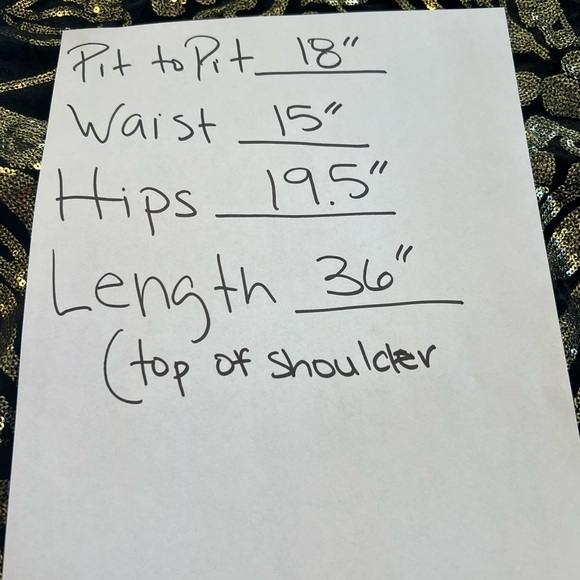 Pit to Pit 18"
Waist 15"
Hips 19.5"
Length 36"
(top of shoulder